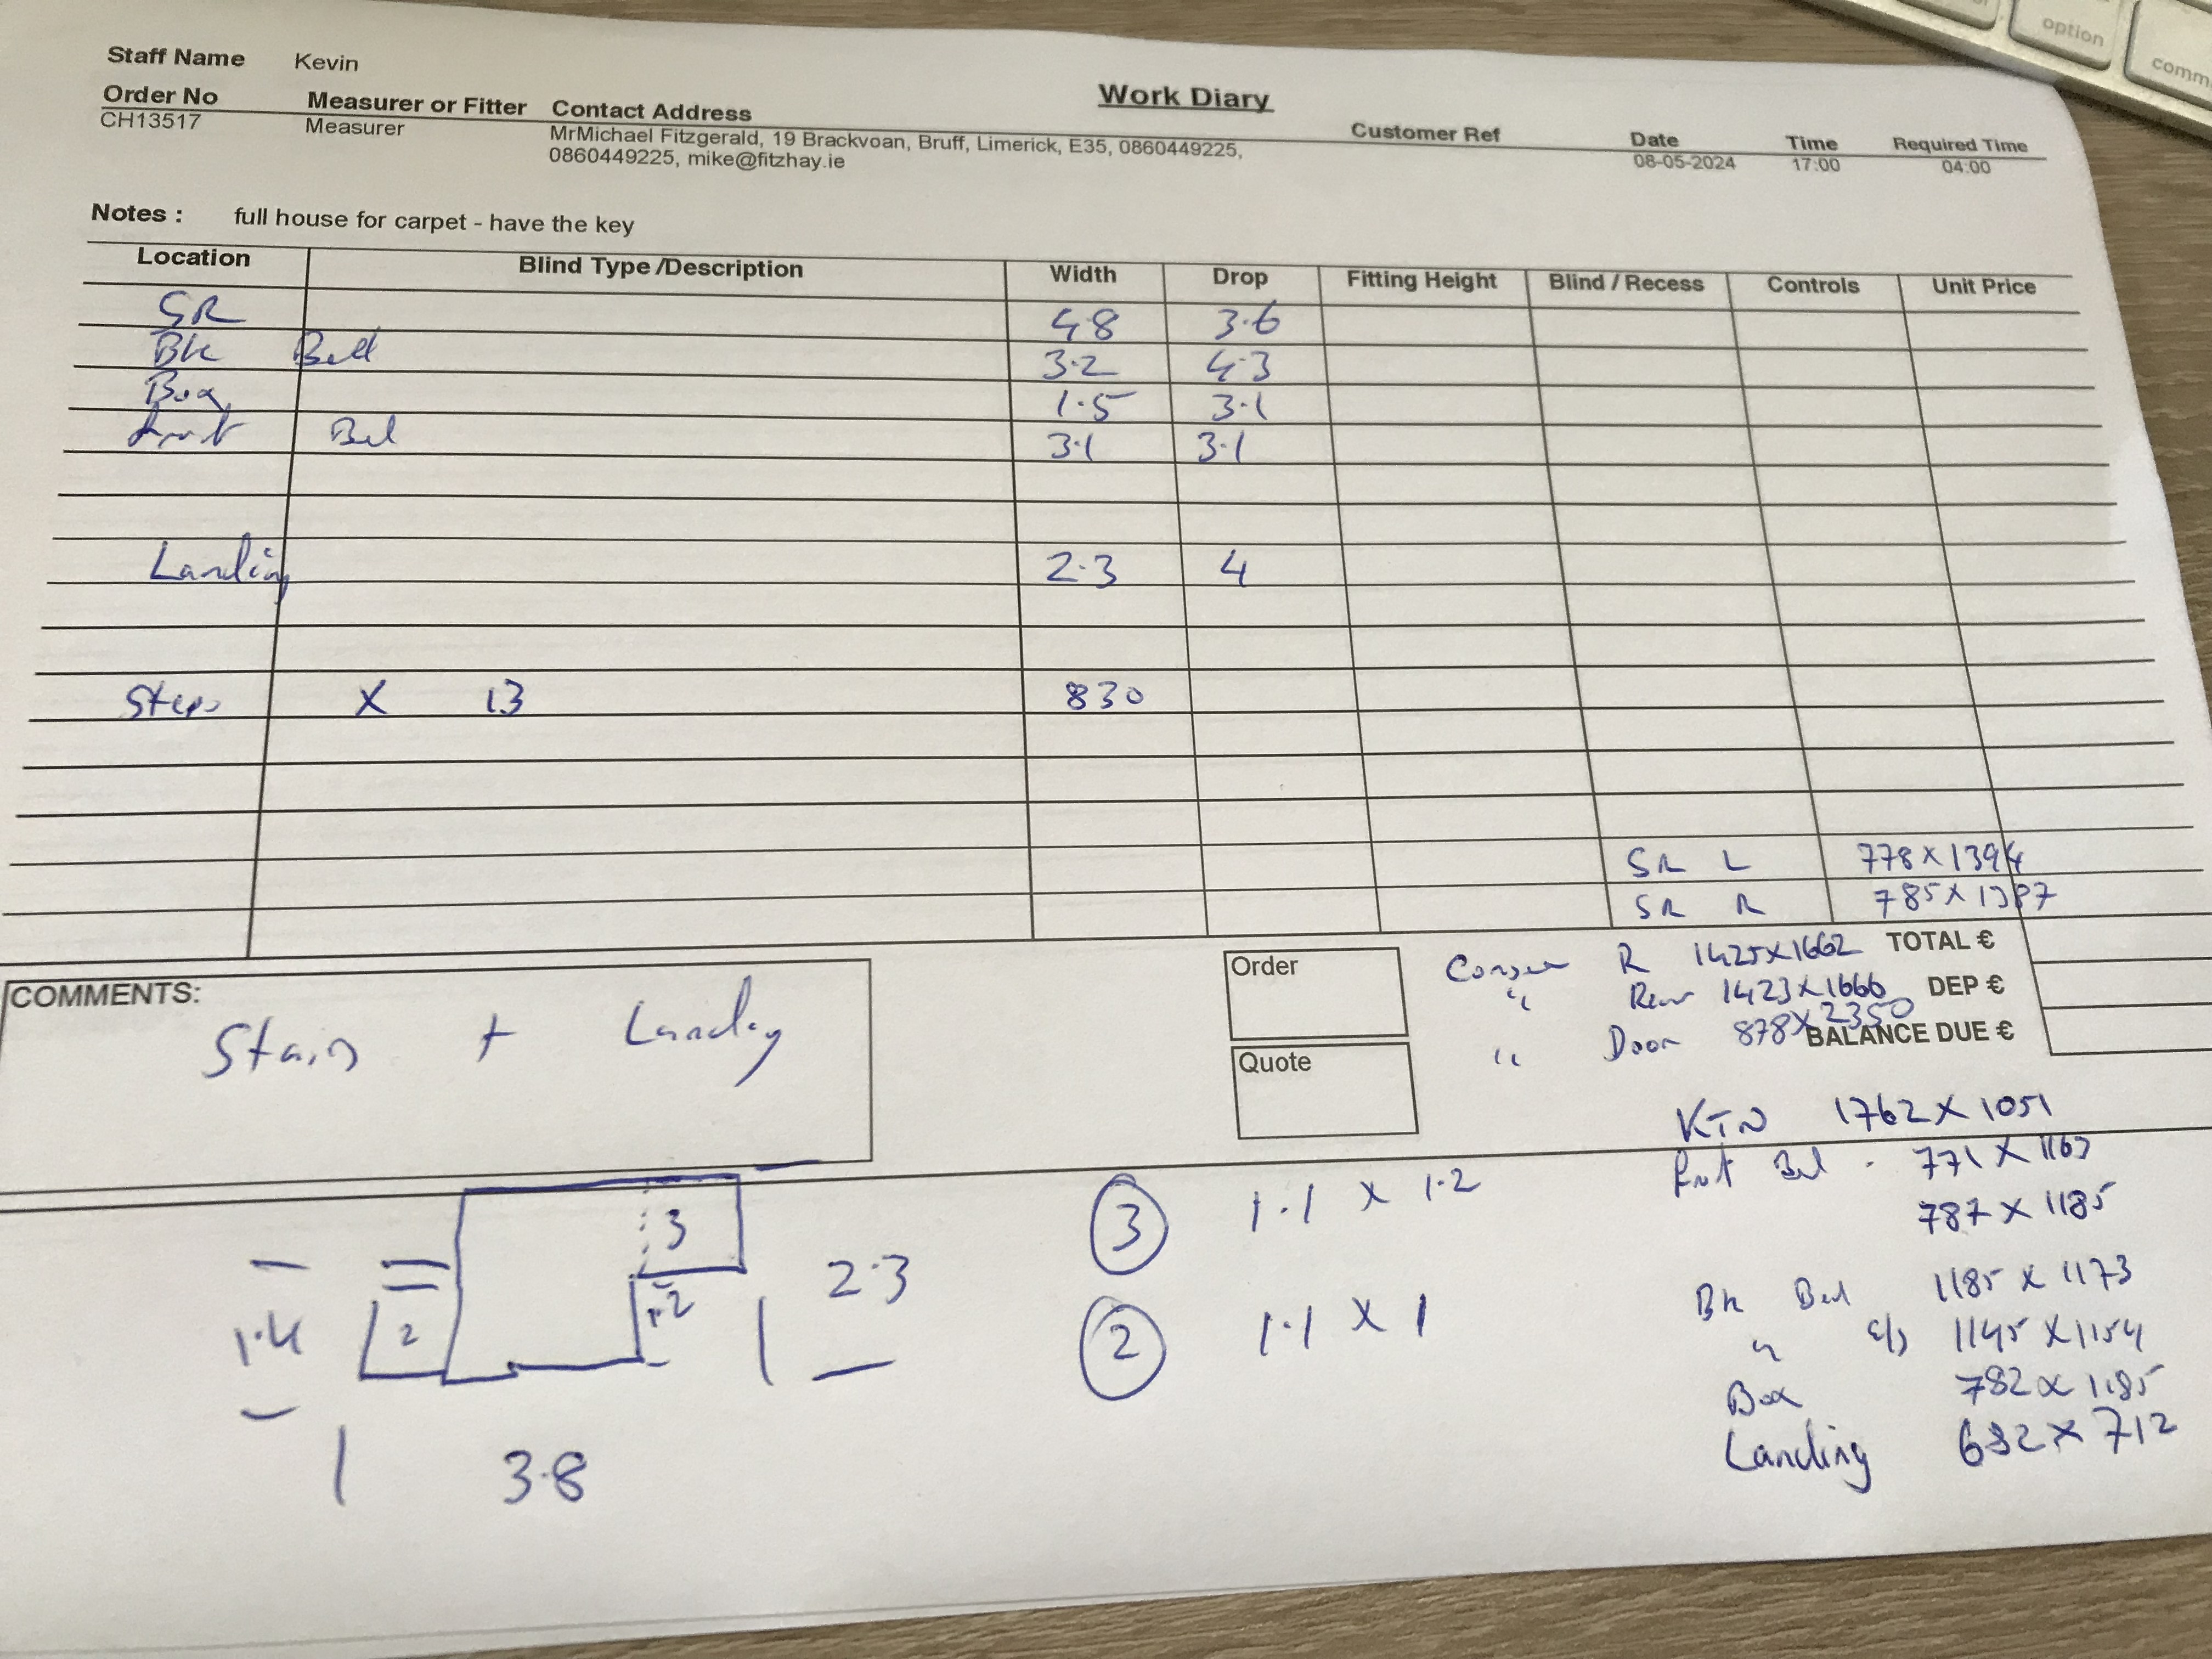 option
comm
Staff Name Kevin
Work Diary
Order No Measurer or Fitter Contact Address Customer Ref Date Time Required Time
CH13517 Measurer MrMichael Fitzgerald, 19 Brackvoan, Bruff, Limerick, E35, 0860449225, 08-05-2024 17:00 04:00
0860449225, mike@fitzhay.ie
Notes : full house for carpet - have the key
Location Blind Type /Description Width Drop Fitting Height Blind / Recess Controls Unit Price
SR 4.8 3.6
Bk Bed 3.2 4.3
Box 1.5 3.1
Frnt Bed 3.1 3.1
Landing 2.3 4
Steps X 13 830
SR L 778 X 1394
SR R 785 X 1387
Order R 1425 X 1662 TOTAL €
COMMENTS: " Rear 1423 X 1666 DEP €
Stairs + Landing " Door 878 X 2350 BALANCE DUE €
Quote
KTN 1762 X 1051
Frnt Bed - 771 X
787 X 1185
3 3 1.1 X 1.2
1.4 2 1.2 2.3
2 1.1 X 1
Bk Bed 1185 X 1173
" 1145 X 1154
Box 782 X 1185
3.8
Landing 682 X 712